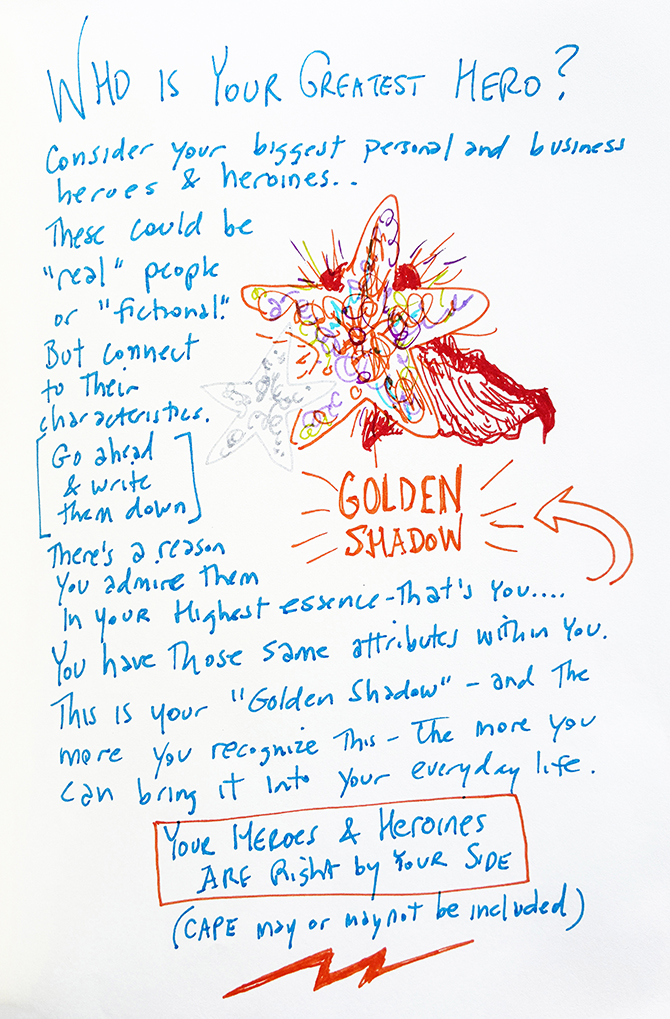 WHO IS YOUR GREATEST HERO?
Consider your biggest personal and business
heroes & heroines..
These could be
"real" people
or "fictional."
But connect
to Their
characteristics.
Go ahead
& write
them down
There's a reason
You admire Them
In your Highest essence - That's You....
You have Those same attributes within You.
This is your "Golden Shadow" - and The
more You recognize This - The more you
can bring it Into Your everyday life.
GOLDEN
SHADOW
Your Heroes & Heroines
ARE Right by Your Side
(CAPE may or may not be included)